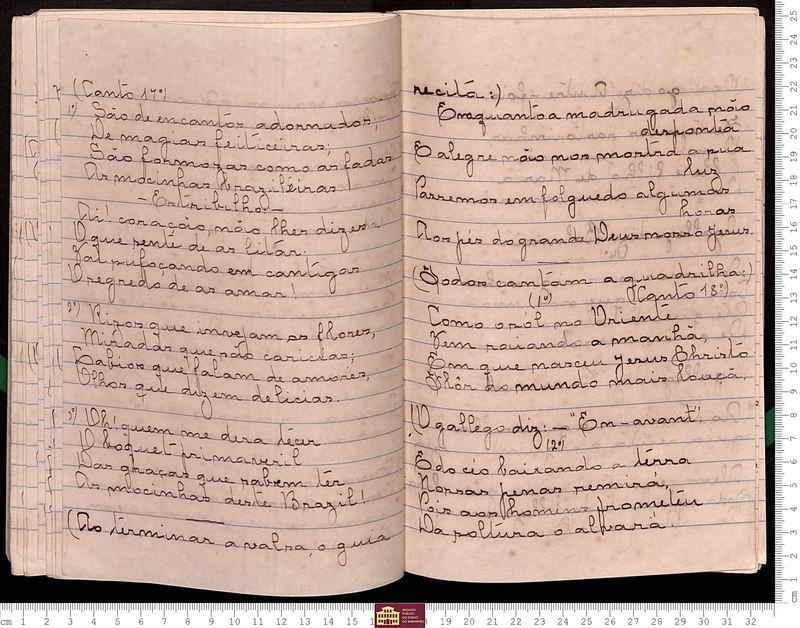 (Canto 17º)
1º) São de encantos adornados,
De magias feiticeiras;
São formozas como as fadas
As mocinhas brazileiras!
- Estribilho -
Ai! coração, não lhes dizes
O que sente de as fitar.
Vai sufocando em cantigas
O segredo de as amar!
2º) Rizos que invejam as flores,
Miradas que são caricias;
Labios que falam de amores,
Olhos que dizem delicias.
3º) Oh! quem me dera técer
O boquet primaveril
Das graças que sabem têr
As mocinhas deste Brazil!
(Ao terminar a valsa, o guia
recitá:)
Emquanto a madrugada não
desponta
E alegre não nos mostra a sua
luz
Passemos em folguedo algumas
horas
Aos pés do grande Deus nosso Jesus.
(Todos cantam a quadrilha:)
(1º) (Canto 18º)
Como o sól no Oriente
Vem raiando a manhã,
Em que nasceu Jesus Christo
Flôr do mundo mais louçã.
(O gallego diz: - "En-avant"
(2º)
E do céo baixando a térra
Nossas penas remirá,
Pois aos homens prometeu
Da soltura o alvará.
ARQUIVO PÚBLICO DO ESTADO DO MARANHÃO